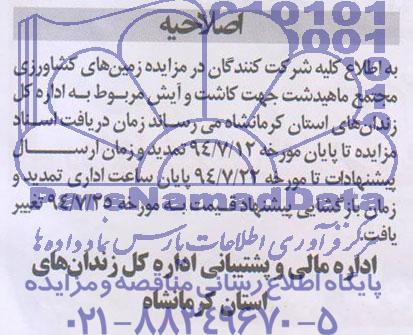 اصلاحیه
به اطلاع کلیه شرکت کنندگان در مزایده زمین‌های کشاورزی
مجتمع ماهیدشت جهت کاشت و آیش مربوط به اداره کل
زندان‌های استان کرمانشاه می رساند زمان دریافت اسناد
مزایده تا پایان مورخه ۹۴/۷/۱۲ تمدید و زمان ارسال
پیشنهادات تا مورخه ۹۴/۷/۲۲ پایان ساعت اداری تمدید و
زمان بازگشایی پیشنهاد قیمت به مورخه ۹۴/۷/۲۵ تغییر
یافت.
ParsNamadData
مرکز فرآوری اطلاعات پارس نماد داده ها
اداره مالی و پشتیبانی اداره کل زندان‌های
پایگاه اطلاع رسانی مناقصه و مزایده
استان کرمانشاه
۰۲۱-۸۸۳۴۹۶۷۰-۵